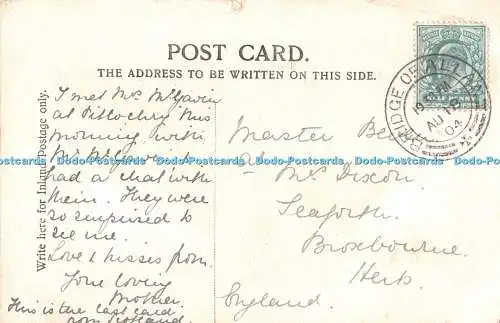 POST CARD.
THE ADDRESS TO BE WRITTEN ON THIS SIDE.
Write here for Inland Postage only.
I met Mrs McGavin
at Pitlochry this
morning with
Mr McGavin
had a chat with
them. They were
so surprised to
see me.
Love & kisses from
Your loving
Mother.
This is the last card
from Scotland
BRIDGE OF ALLAN
AU 15
04
Master
Mrs Dixon
Seaforth
Broxbourne.
Herts
England.
Dodo-Postcards Dodo-Postcards Dodo-Postcards Dodo-Postcards Dodo-Postcards Dodo-Postcards